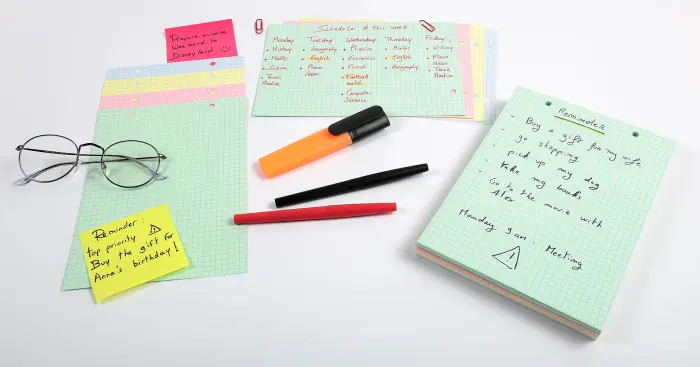 Prepare a surprise
Weekend to
Disneyland
Schedule of this week
Monday
History
Maths
Science
Tennis
Practice
Tuesday
Geography
English
Piano
lesson
Wednesday
Physics
Economics
French
Football
match
Computer
Science
Thursday
Maths
English
Geography
Friday
History
Piano
lesson
Tennis
Practice
Reminder :
top priority
Buy the gift for
Anna's birthday !
Reminder
- Buy a gift for my wife
- go shopping
- pick up my dog
- Take my books
- Go to the movie with
Alex
Monday 9am : Meeting
!